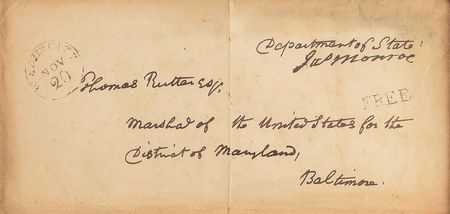 Department of State:
Jas Monroe
WASHN CITY
NOV
20
FREE
Thomas Rutter Esqr.
Marshal of the United States for the
District of Maryland,
Baltimore.